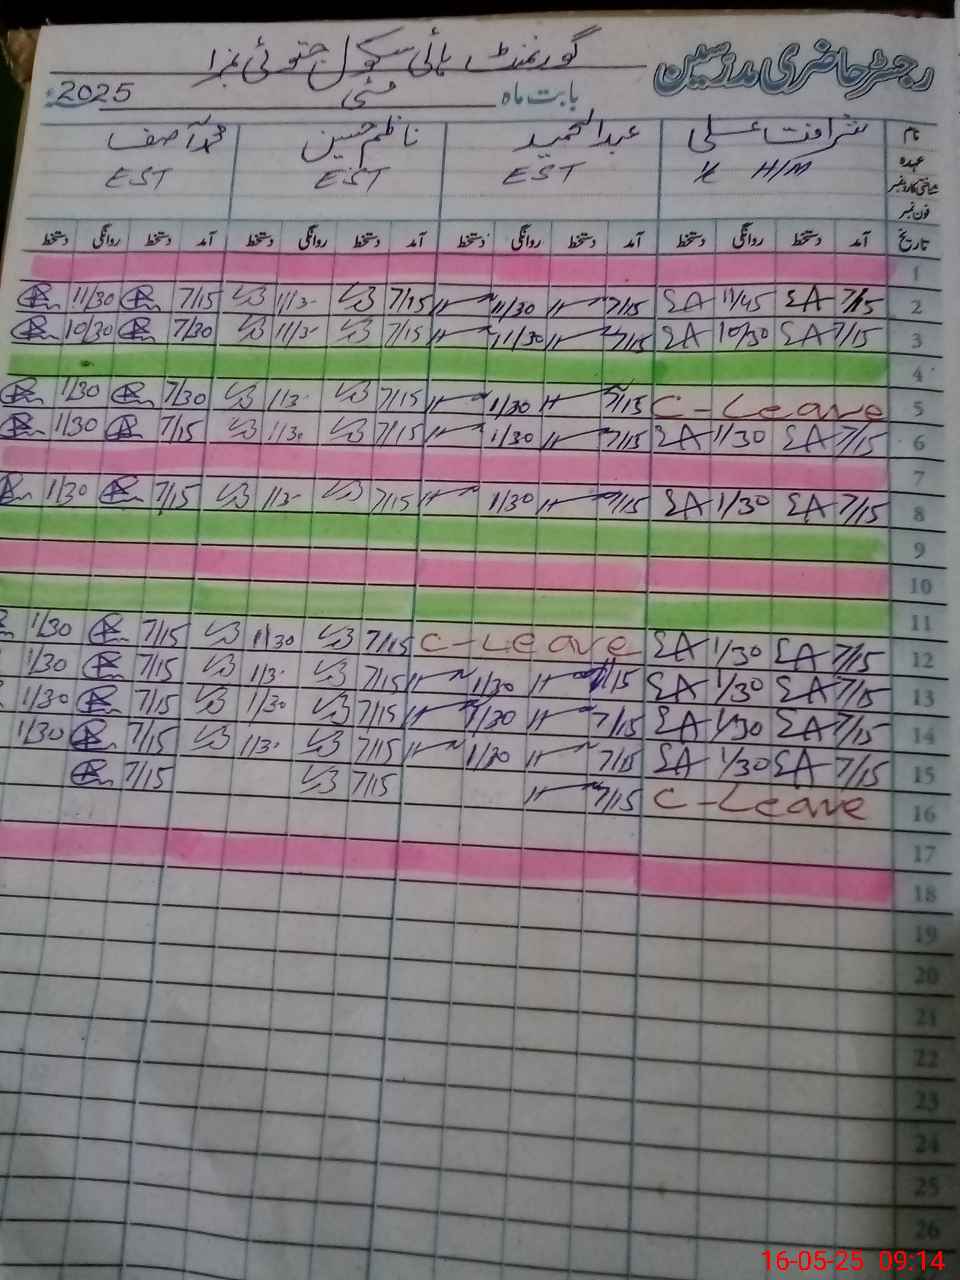 رجسٹر حاضری مدرسین
گورنمنٹ ہائی سکول جتوئی نمبر 1
بابت ماہ مئی 2025ء
نام شرافت علی عبدالحمید ناظم حسین محمد آصف
عہدہ H/M EST EST EST
شناختی کارڈ نمبر
فون نمبر
تاریخ آمد دستخط روانگی دستخط آمد دستخط روانگی دستخط آمد دستخط روانگی دستخط آمد دستخط روانگی دستخط
1
2 7/15 11/45 7/15 11/30 7/15 11/3- 7/15 11/30
3 7/15 10/30 7/15 11/30 7/15 11/3- 7/30 10/30
4
5 C-Leave 7/15 1/30 7/15 1/3- 7/30 1/30
6 7/15 1/30 7/15 1/30 7/15 1/3- 7/15 1/30
7
8 7/15 1/30 7/15 1/30 7/15 1/3- 7/15 1/30
9
10
11
12 7/15 1/30 C-Leave 7/15 1/30 7/15 1/30
13 7/15 1/30 7/15 1/30 7/15 1/3- 7/15 1/30
14 7/15 1/30 7/15 1/30 7/15 1/30 7/15 1/30
15 7/15 1/30 7/15 1/30 7/15 1/3- 7/15 1/30
16 C-Leave 7/15 7/15 7/15
17
18
19
20
21
22
23
24
25
26
16-05-25 09:14